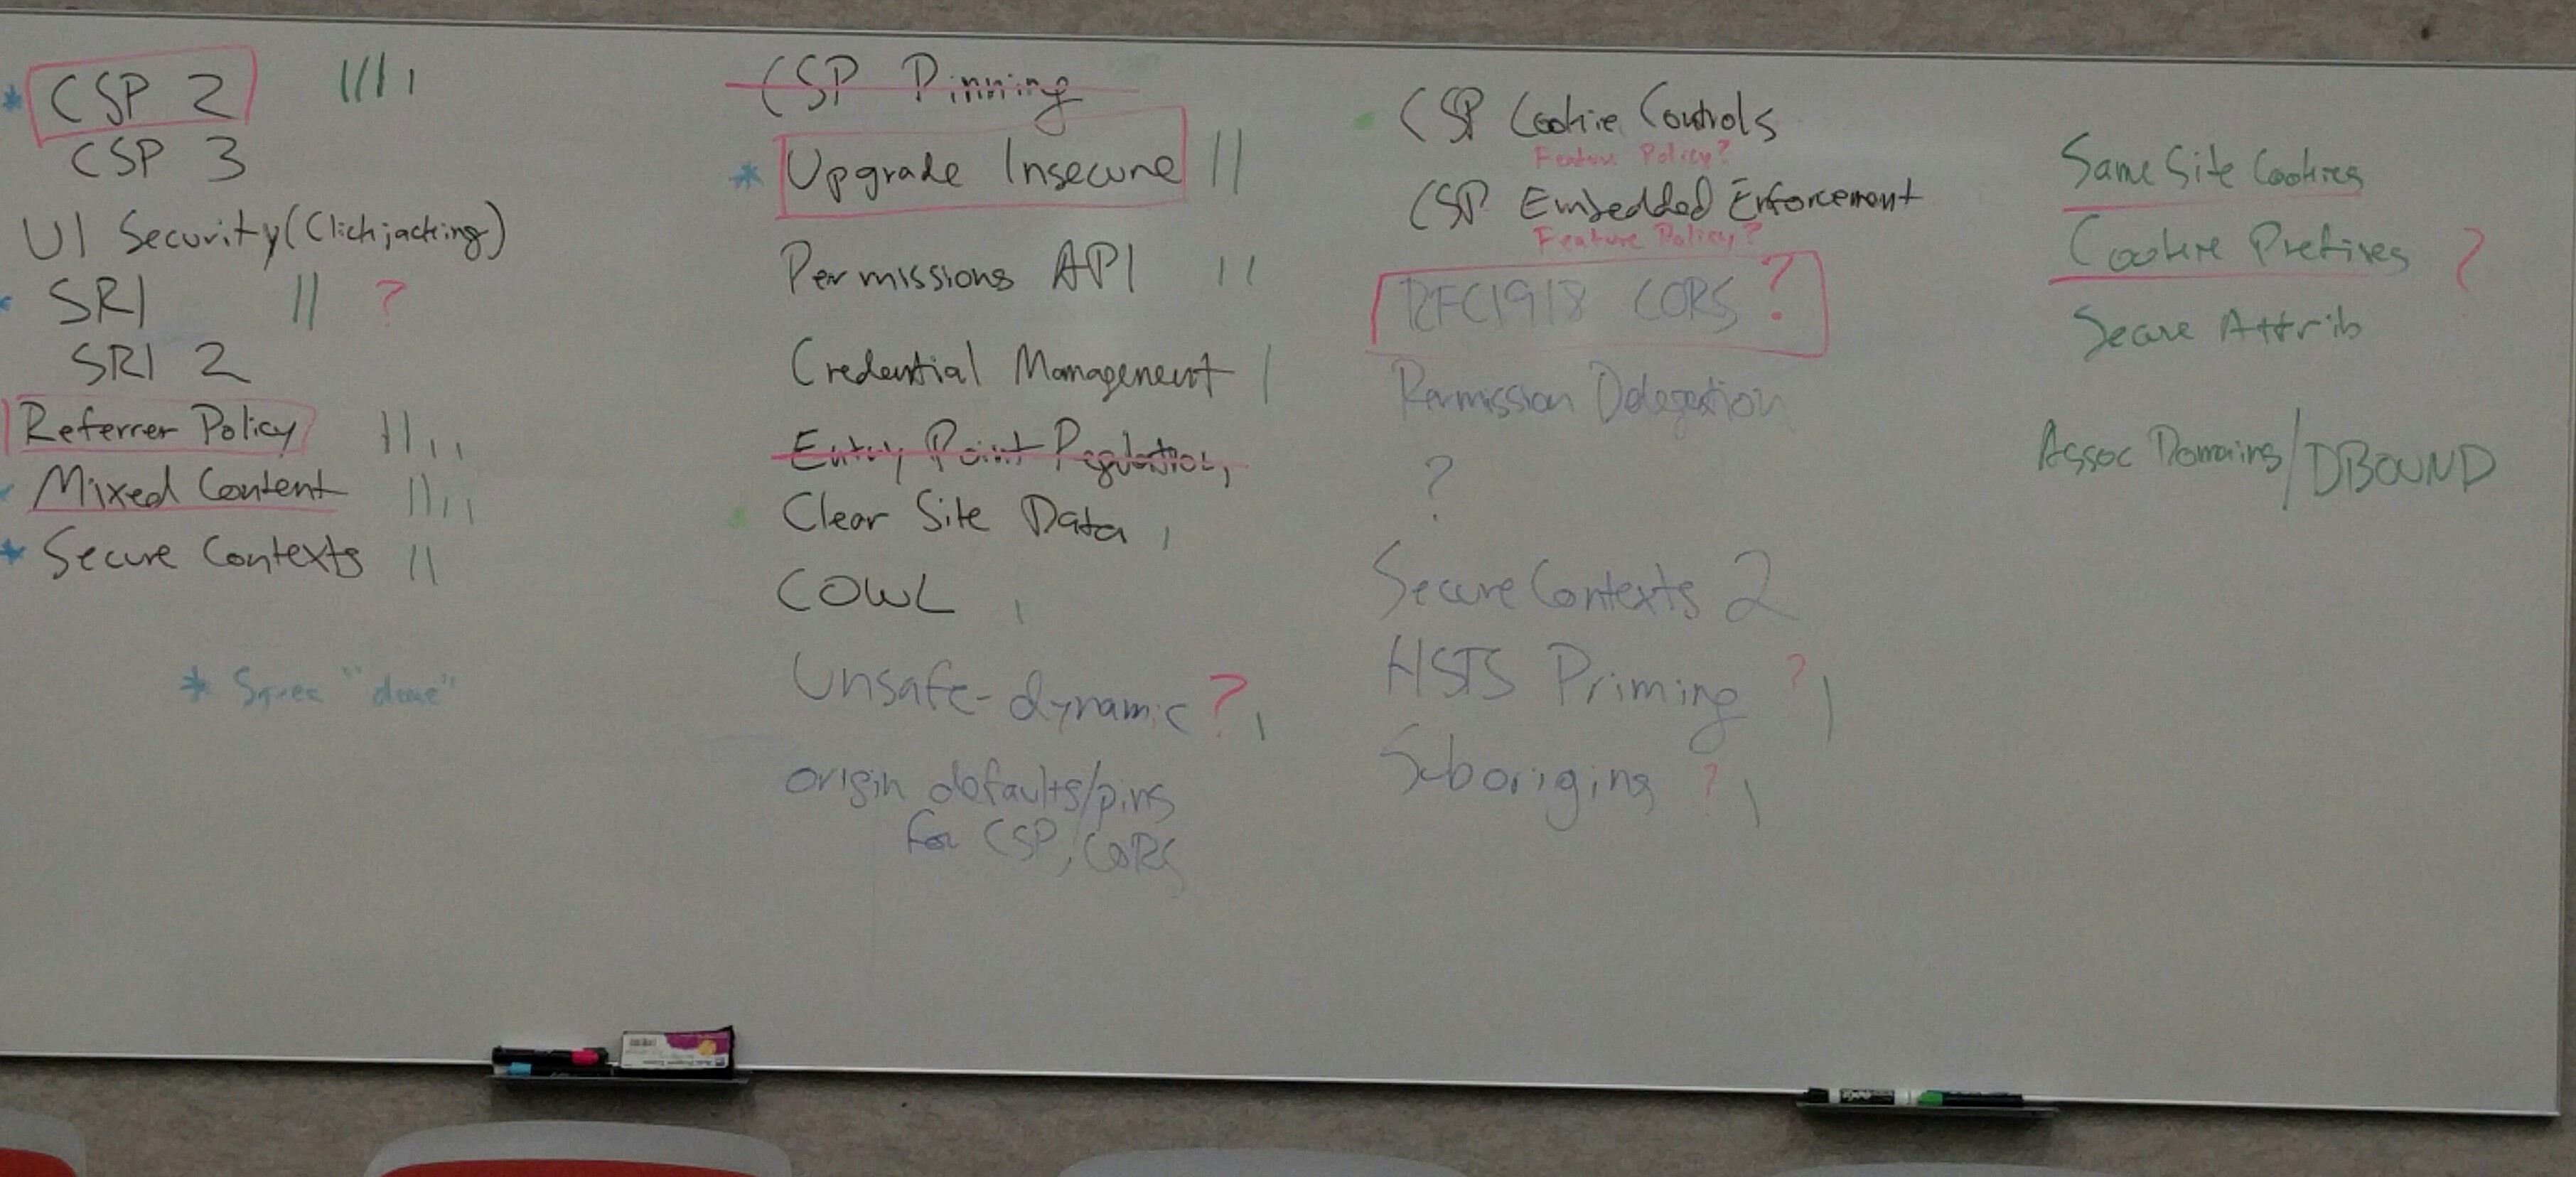 * CSP 2 ||||
CSP 3
UI Security (Clickjacking)
SRI || ?
SRI 2
Referrer Policy ||||
Mixed Content ||||
* Secure Contexts ||
* Spec "done"
CSP Pinning
* Upgrade Insecure ||
Permissions API ||
Credential Management |
Entry Point Regulation
Clear Site Data |
COWL |
Unsafe-dynamic ? |
origin defaults/pins
for CSP, CORS
CSP Cookie Controls
Feature Policy?
CSP Embedded Enforcement
Feature Policy?
RFC1918 CORS ?
Permission Delegation
?
Secure Contexts 2
HSTS Priming ? |
Suborigins ? |
Same Site Cookies
Cookie Prefixes ?
Secure Attrib
Assoc Domains/DBOUND